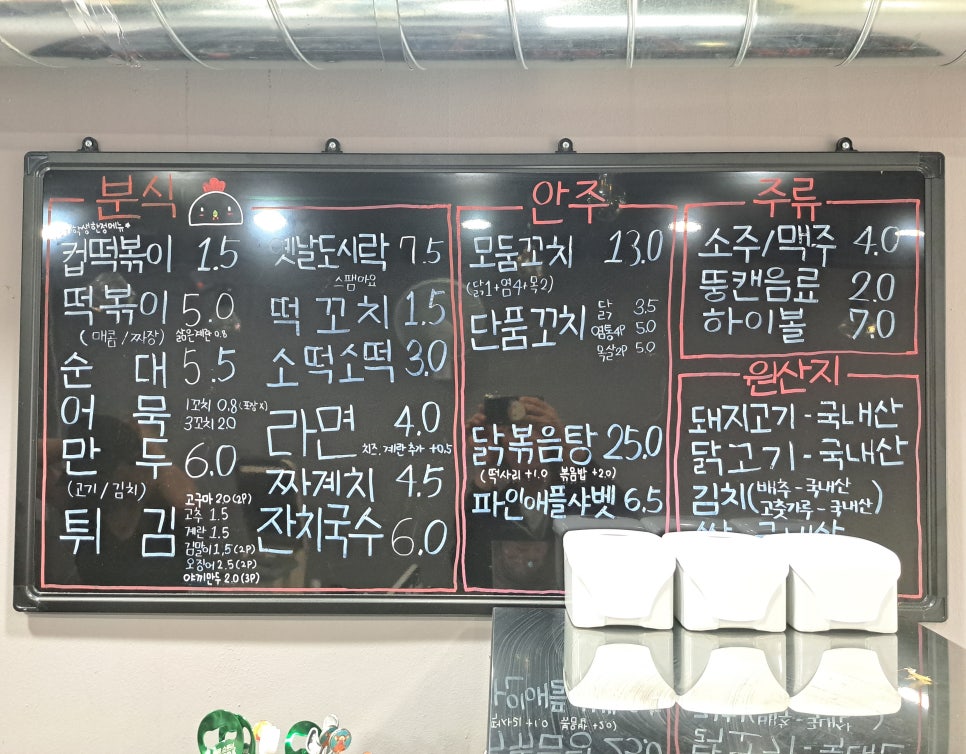 분식
학생한정메뉴*
컵떡볶이 1.5
떡볶이 5.0
(매콤/짜장) 삶은계란 0.8
순대 5.5
어묵 1꼬치 0.8 (포장X)
3꼬치 2.0
만두 6.0
(고기/김치)
튀김
고구마 2.0 (2P)
고추 1.5
계란 1.5
김말이 1.5 (2P)
오징어 2.5 (2P)
야끼만두 2.0 (3P)
옛날도시락 7.5
스팸마요
떡꼬치 1.5
소떡소떡 3.0
라면 4.0
치즈, 계란추가 +0.5
짜계치 4.5
잔치국수 6.0
안주
모둠꼬치 13.0
(닭1+염4+목2)
단품꼬치
닭 3.5
염통4P 5.0
목살2P 5.0
닭볶음탕 25.0
(떡사리 +1.0 볶음밥 +2.0)
파인애플샤벳 6.5
주류
소주/맥주 4.0
뚱캔음료 2.0
하이볼 7.0
원산지
돼지고기 - 국내산
닭고기 - 국내산
김치(배추 - 국내산
고춧가루 - 국내산)